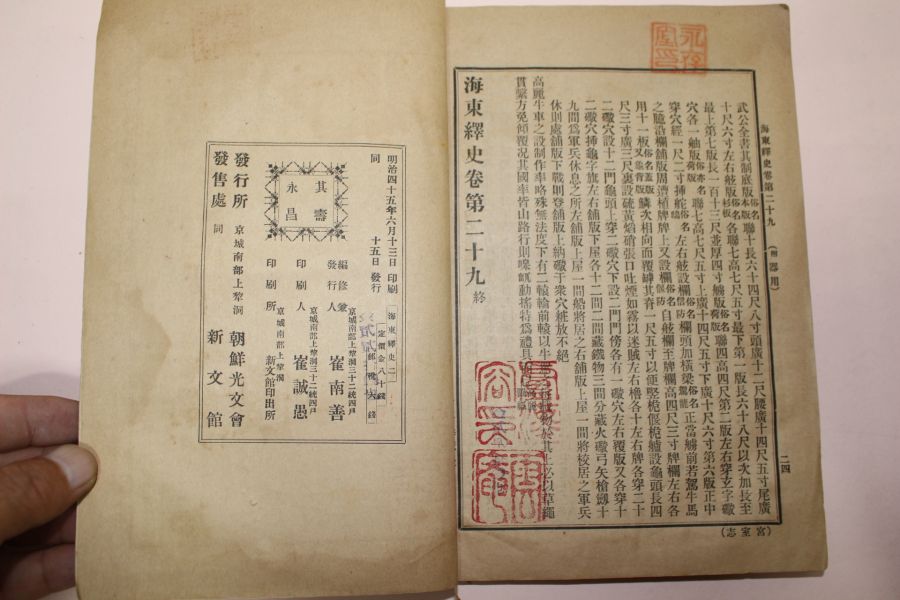 海東繹史卷第二十九 (附器用)
二四
(宮室志)
武公全書其制底版俗名本版聯十長六十四尺八寸頭廣十二尺腰廣十四尺五寸尾廣
十尺六寸左右舷版俗名杉板各聯七高七尺五寸最下第一版長六十八尺以次加長至
最上第七版長一百十三尺並厚四寸艫版俗名荷版聯四高四尺第二版左右穿玄字礮
穴各一舳版俗亦名荷版聯七高七尺五寸上廣十四尺五寸下廣十尺六寸第六版正中
穿穴經一尺二寸挿舵俗名鴟左右舷設欄俗名信防欄頭加橫梁俗名駕龍正當艫前若駕牛馬
之臆沿欄舖版周濟植牌牌上又設欄俗名偃防自舷欄至牌欄高四尺三寸牌欄左右各
用十一板俗名蓋版又龜背版鱗次相向而覆罅其脊一尺五寸以便竪桅偃桅艫設龜頭長四
尺三寸廣三尺裏設硫黃焰硝張口吐煙如霧以迷賊左右櫓各十左右牌各穿二十
二礮穴設十二門龜頭上穿二礮穴下設二門門傍各有一礮穴左右覆版又各穿十
二礮穴挿龜字旗左右舖版下屋各十二間二間藏鐵物三間分藏火礮弓矢槍劒十
九間爲軍兵休息之所左舖版上屋一間船將居之右舖版上屋一間將校居之軍兵
休則處舖版下戰則登舖版上納礮于衆穴粧放不絕
高麗牛車之設制作率略殊無法度下有二轅輪前轅以牛
物於其上必以草繩
貫繫方免傾覆况其國率皆山路行則
動搖特爲禮具
海東繹史卷第二十九 終
其壽
永昌
明治四十五年六月十三日 印刷
同 十五日 發行
海東繹史二
定價金八十錢
編修兼發行人 京城南部上犂洞三十二統四戶 崔南善
印刷人 京城南部上犂洞三十二統四戶 崔誠愚
印刷所 京城南部上犂洞 新文館印出所
發行所 京城南部上犂洞 朝鮮光文會
發售處 同 新文館